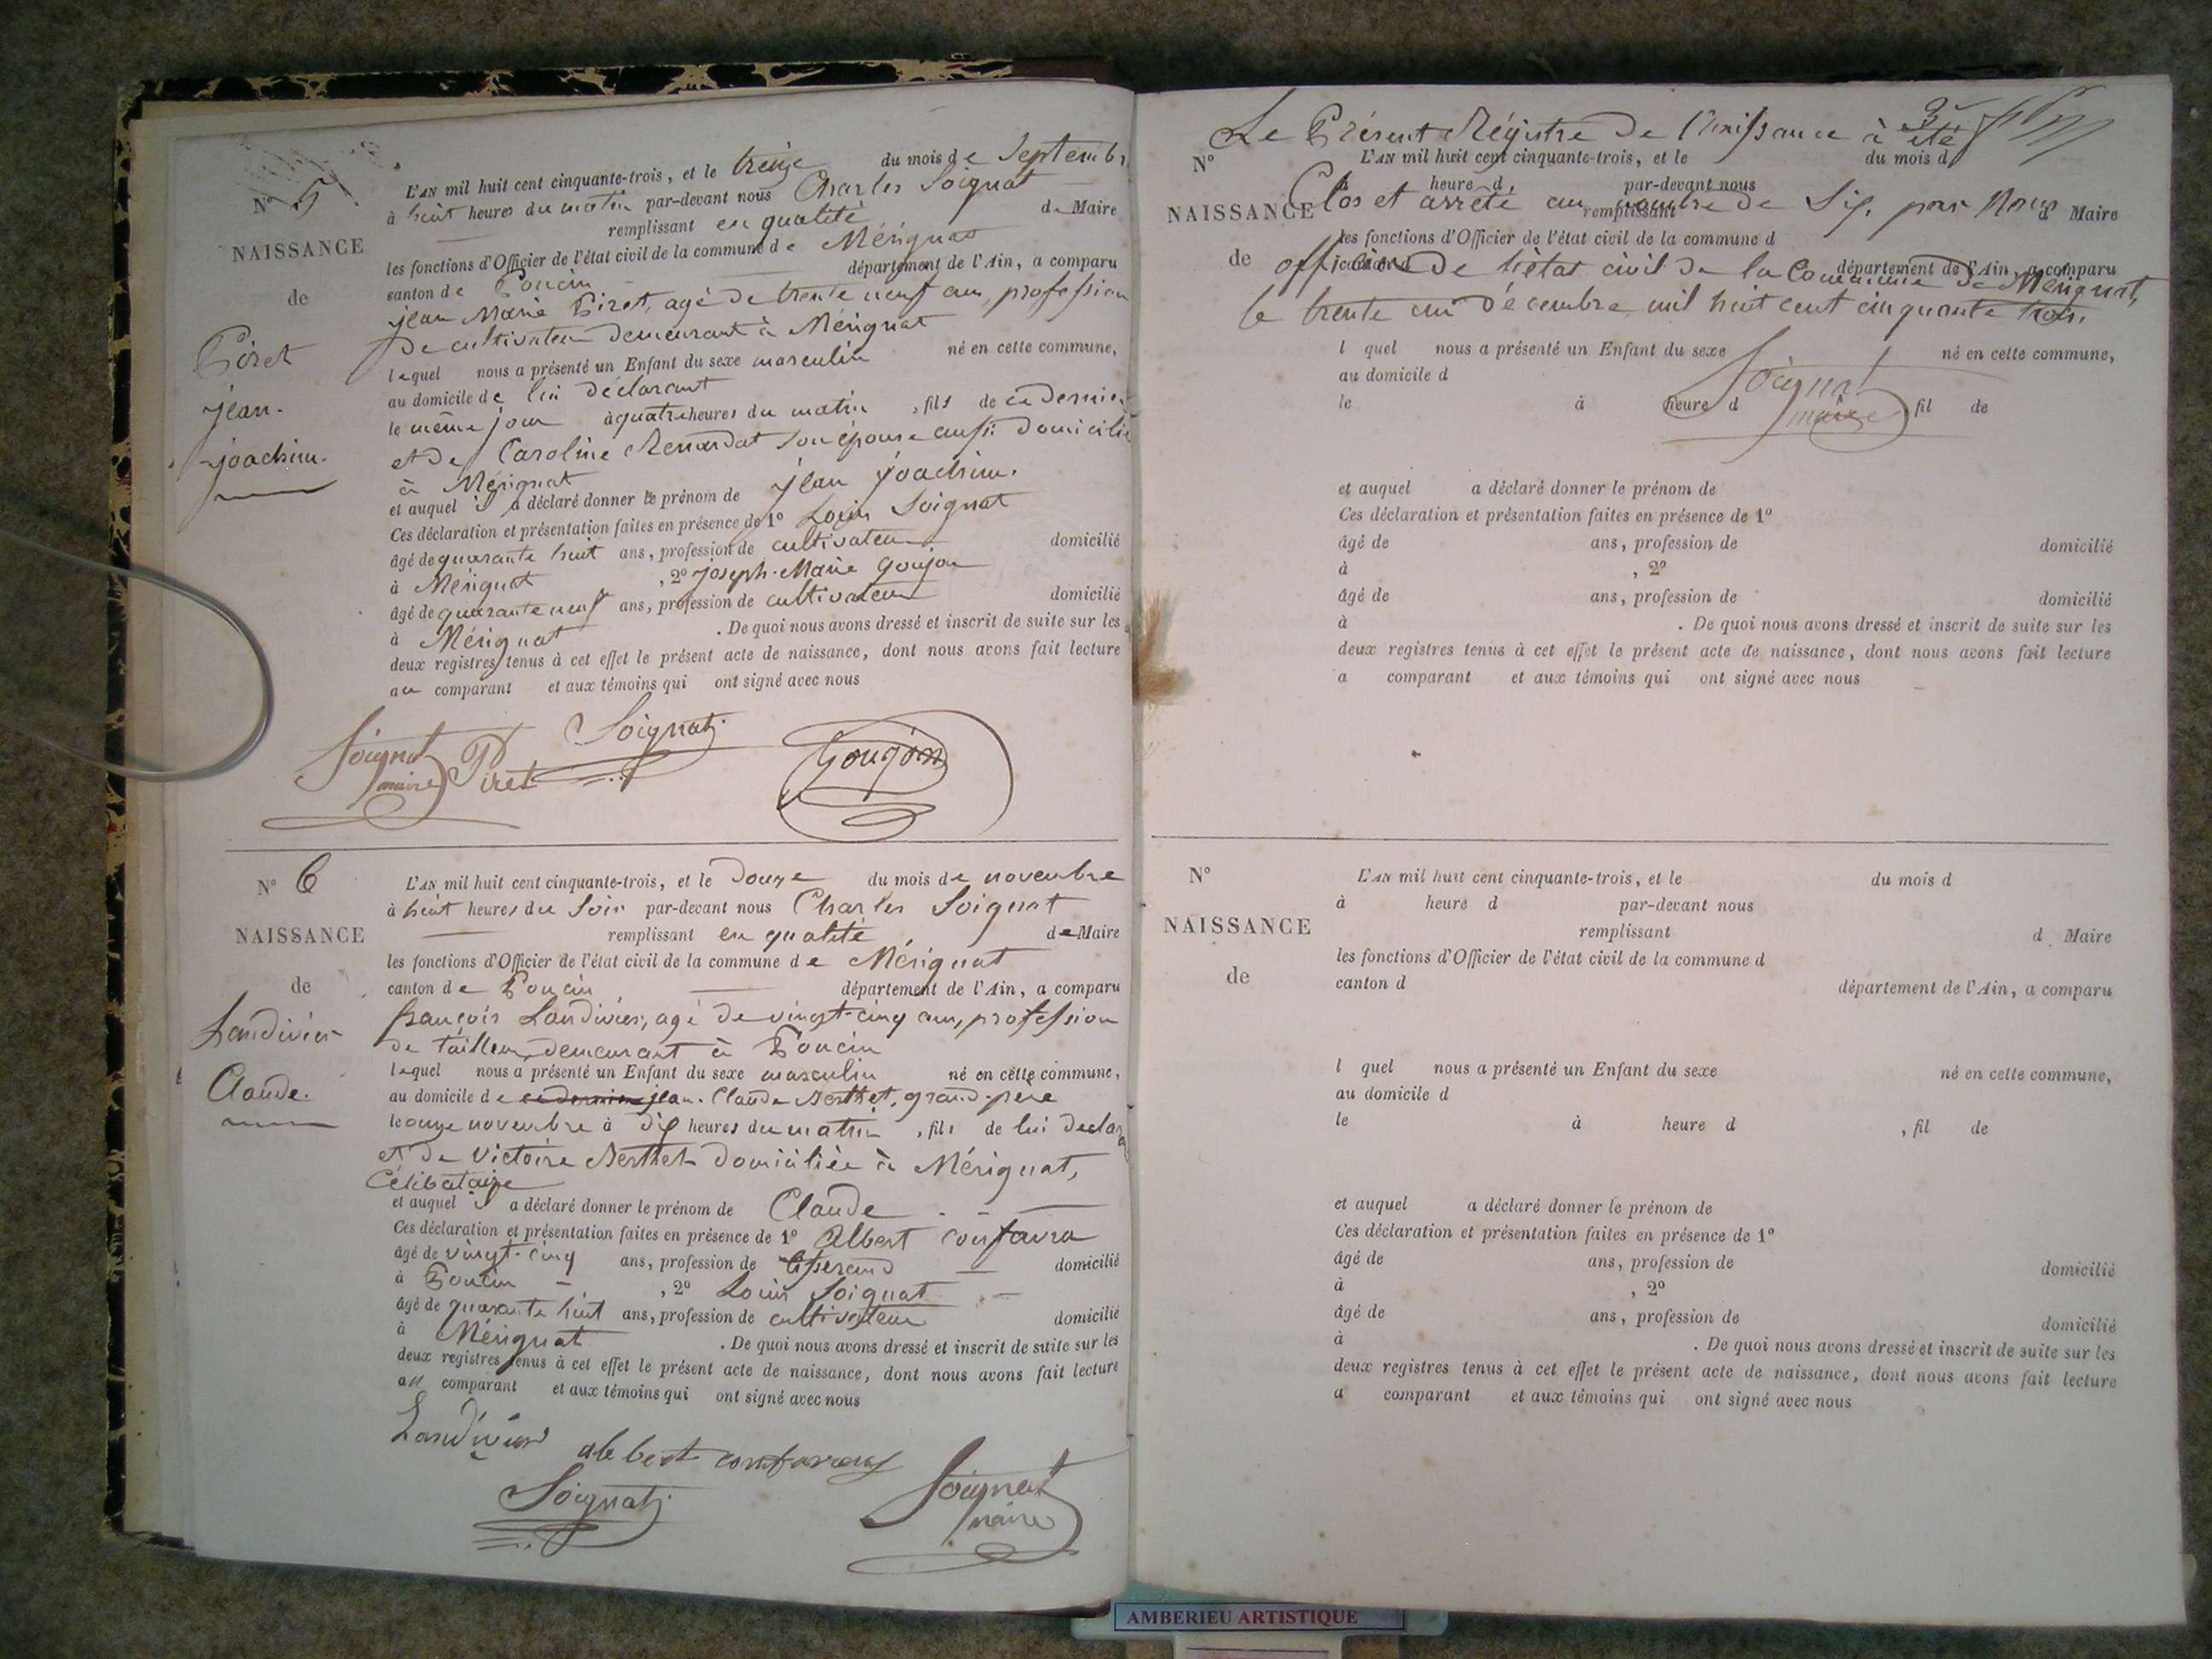 N° 5
NAISSANCE
de
Piret
jean-
joachim.
L'AN mil huit cent cinquante-trois, et le treize du mois de Septembr
à huit heures du matin par-devant nous Charles Soignat
remplissant en qualité de Maire
les fonctions d'Officier de l'état civil de la commune de Mérignat
canton de Poncin département de l'Ain, a comparu
jean Marie Piret, agé de trente neuf ans, profession
de cultivateur demeurant à Mérignat
lequel nous a présenté un Enfant du sexe masculin né en cette commune,
au domicile de lui déclarant
le même jour à quatre heures du matin, fils de ce dernier
et de Caroline Renardat son épouse aussi domicilié
à Mérignat
et auquel il a déclaré donner le prénom de jean joachim.
Ces déclaration et présentation faites en présence de 1° Louis Soignat
âgé de quarante huit ans, profession de cultivateur domicilié
à Mérignat, 2° joseph-Marie goujon
âgé de quarante neuf ans, profession de cultivateur domicilié
à Mérignat. De quoi nous avons dressé et inscrit de suite sur les
deux registres tenus à cet effet le présent acte de naissance, dont nous avons fait lecture
au comparant et aux témoins qui ont signé avec nous
Soignat
maire
Piret
Soignat
Goujon
N° 6
NAISSANCE
de
Landivier
Claude.
L'AN mil huit cent cinquante-trois, et le douze du mois de novembre
à huit heures du soir par-devant nous Charles Soignat
remplissant en qualité de Maire
les fonctions d'Officier de l'état civil de la commune de Mérignat
canton de Poncin département de l'Ain, a comparu
françois Landivier, agé de vingt-cinq ans, profession
de tailleur, demeurant à Poncin
lequel nous a présenté un Enfant du sexe masculin né en cette commune,
au domicile de ce dernier jean-Claude Berthet, grand-père
le onze novembre à dix heures du matin, fils de lui declara
et de Victoire Berthet domiciliée à Mérignat,
Célibataire
et auquel il a déclaré donner le prénom de Claude
Ces déclaration et présentation faites en présence de 1° Albert
âgé de vingt-cinq ans, profession de tisserand domicilié
à Poncin, 2° Louis Soignat
âgé de quarante huit ans, profession de cultivateur domicilié
à Mérignat. De quoi nous avons dressé et inscrit de suite sur les
deux registres tenus à cet effet le présent acte de naissance, dont nous avons fait lecture
au comparant et aux témoins qui ont signé avec nous
Landivier
Soignat
Soignat
maire
Le Présent Régistre de Naissance à été
N°
L'AN mil huit cent cinquante-trois, et le du mois d
à heure d par-devant nous
Clos et arrêté au nombre de Six, par Nous
NAISSANCE
remplissant d Maire
les fonctions d'Officier de l'état civil de la commune d
de
canton d département de l'Ain, a comparu
officier de l'état civil de la Commune de Mérignat,
le trente un décembre mil huit cent cinquante trois.
l quel nous a présenté un Enfant du sexe né en cette commune,
au domicile d
le à heure d fil de
Soignat
maire
et auquel a déclaré donner le prénom de
Ces déclaration et présentation faites en présence de 1°
âgé de ans, profession de domicilié
à , 2°
âgé de ans, profession de domicilié
à . De quoi nous avons dressé et inscrit de suite sur les
deux registres tenus à cet effet le présent acte de naissance, dont nous avons fait lecture
a comparant et aux témoins qui ont signé avec nous
N°
NAISSANCE
de
L'AN mil huit cent cinquante-trois, et le du mois d
à heure d par-devant nous
remplissant d Maire
les fonctions d'Officier de l'état civil de la commune d
canton d département de l'Ain, a comparu
l quel nous a présenté un Enfant du sexe né en cette commune,
au domicile d
le à heure d , fil de
et auquel a déclaré donner le prénom de
Ces déclaration et présentation faites en présence de 1°
âgé de ans, profession de domicilié
à , 2°
âgé de ans, profession de domicilié
à . De quoi nous avons dressé et inscrit de suite sur les
deux registres tenus à cet effet le présent acte de naissance, dont nous avons fait lecture
a comparant et aux témoins qui ont signé avec nous
AMBERIEU ARTISTIQUE